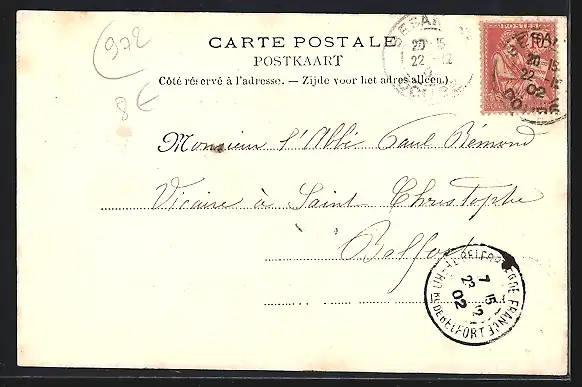 972
8 €
CARTE POSTALE
POSTKAART
Côté réservé à l'adresse. — Zijde voor het adres alleen.)
20 - 15
22 - 12
POSTES
10
20 - 15
22 - 12
02
DOUBS
Monsieur l'Abbé Paul Bémond
Vicaire à Saint Christophe
Belfort
7 15
22 12
02
BELFORT